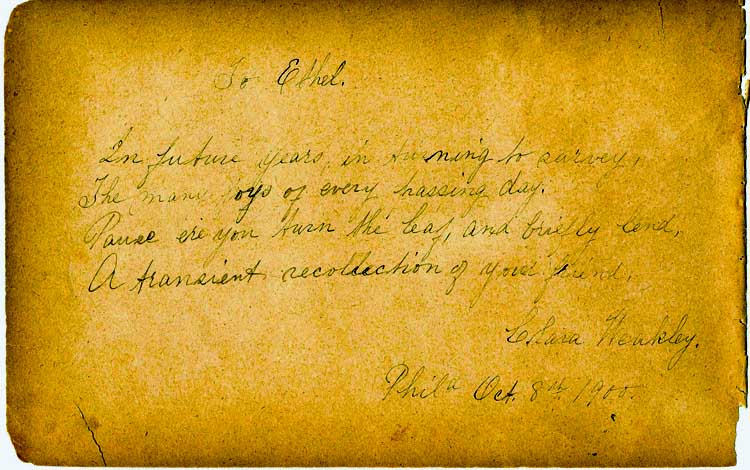 To Ethel.
In future years, in turning to survey,
The many joys of every passing day.
Pause ere you turn the leaf, and briefly lend,
A transient recollection of your friend,
Clara Weakley.
Phila Oct. 8th 1900.